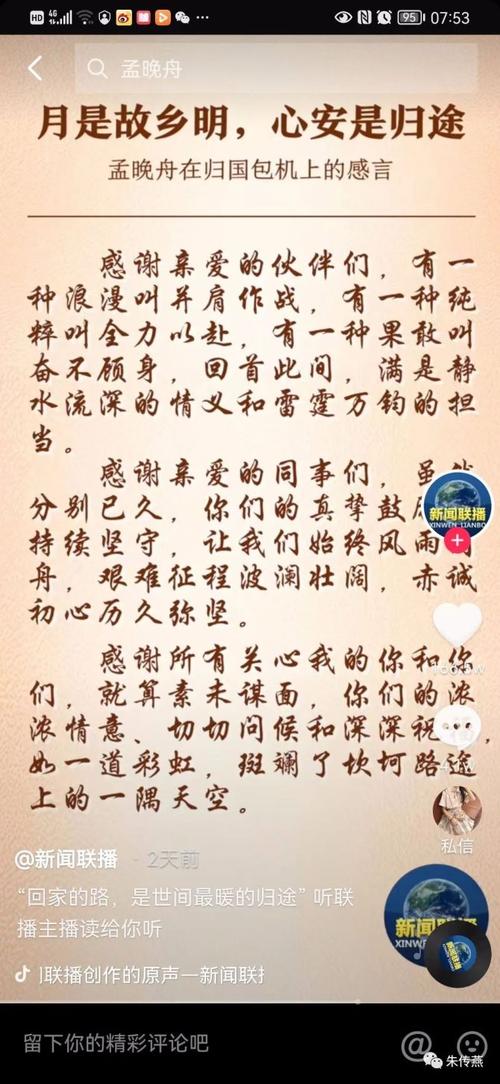 HD 4G 95 07:53
孟晚舟
月是故乡明，心安是归途
孟晚舟在归国包机上的感言
感谢亲爱的伙伴们，有一
种浪漫叫并肩作战，有一种纯
粹叫全力以赴，有一种果敢叫
奋不顾身，回首此间，满是静
水流深的情义和雷霆万钧的担
当。
感谢亲爱的同事们，虽然
分别已久，你们的真挚鼓
持续坚守，让我们始终风雨
舟，艰难征程波澜壮阔，赤诚
初心历久弥坚。
感谢所有关心我的你和你
们，就算素未谋面，你们的浓
浓情意、切切问候和深深祝，
如一道彩虹，斑斓了坎坷路途
上的一隅天空。
新闻联播
XINWEN LIANBO
私信
@新闻联播 · 2天前
“回家的路，是世间最暖的归途”听联
播主播读给你听
联播创作的原声一新闻联
新闻联播
XINWEN
留下你的精彩评论吧
朱传燕